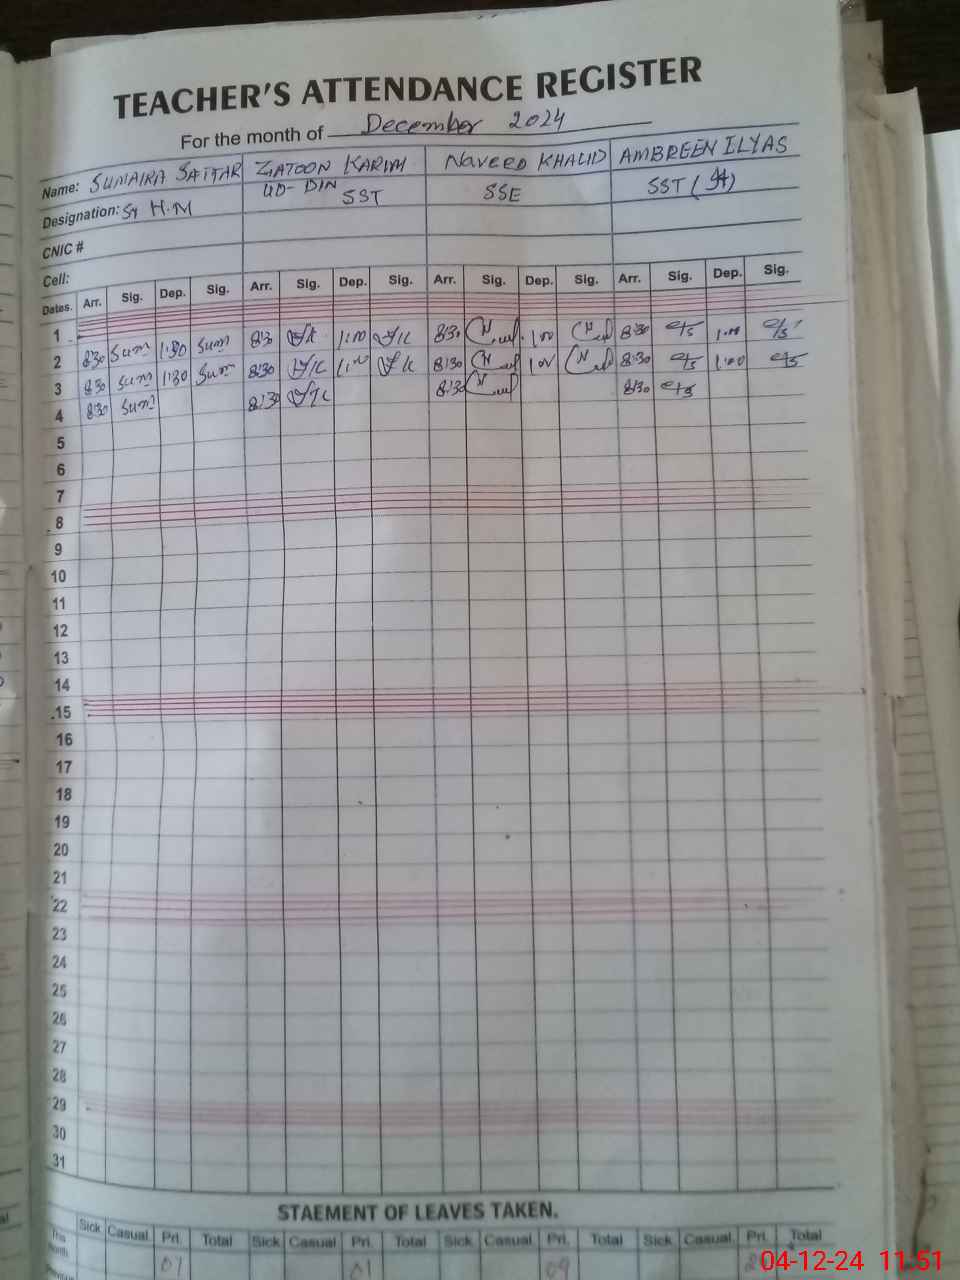 TEACHER'S ATTENDANCE REGISTER
For the month of December 2024
Name: SUMAIRA SATTAR ZATOON KARIM NAVEED KHALID AMBREEN ILYAS
UD-DIN
Designation: H.M SST SSE SST
CNIC #
Cell:
Dates. Arr. Sig. Dep. Sig. Arr. Sig. Dep. Sig. Arr. Sig. Dep. Sig. Arr. Sig. Dep. Sig.
1
2 8:30 Sum 1:30 Sum 8:30 1:00 8:30 1:00 8:30 1:00
3 8:30 Sum 1:30 Sum 8:30 1:00 8:30 1:00 8:30 1:00
4 8:30 Sum 8:30 8:30 8:30
5
6
7
8
9
10
11
12
13
14
15
16
17
18
19
20
21
22
23
24
25
26
27
28
29
30
31
STAEMENT OF LEAVES TAKEN.
This Month Sick Casual Pri. Total Sick Casual Pri. Total Sick Casual Pri. Total Sick Casual. Pri. Total
01 01 09
04-12-24 11:51